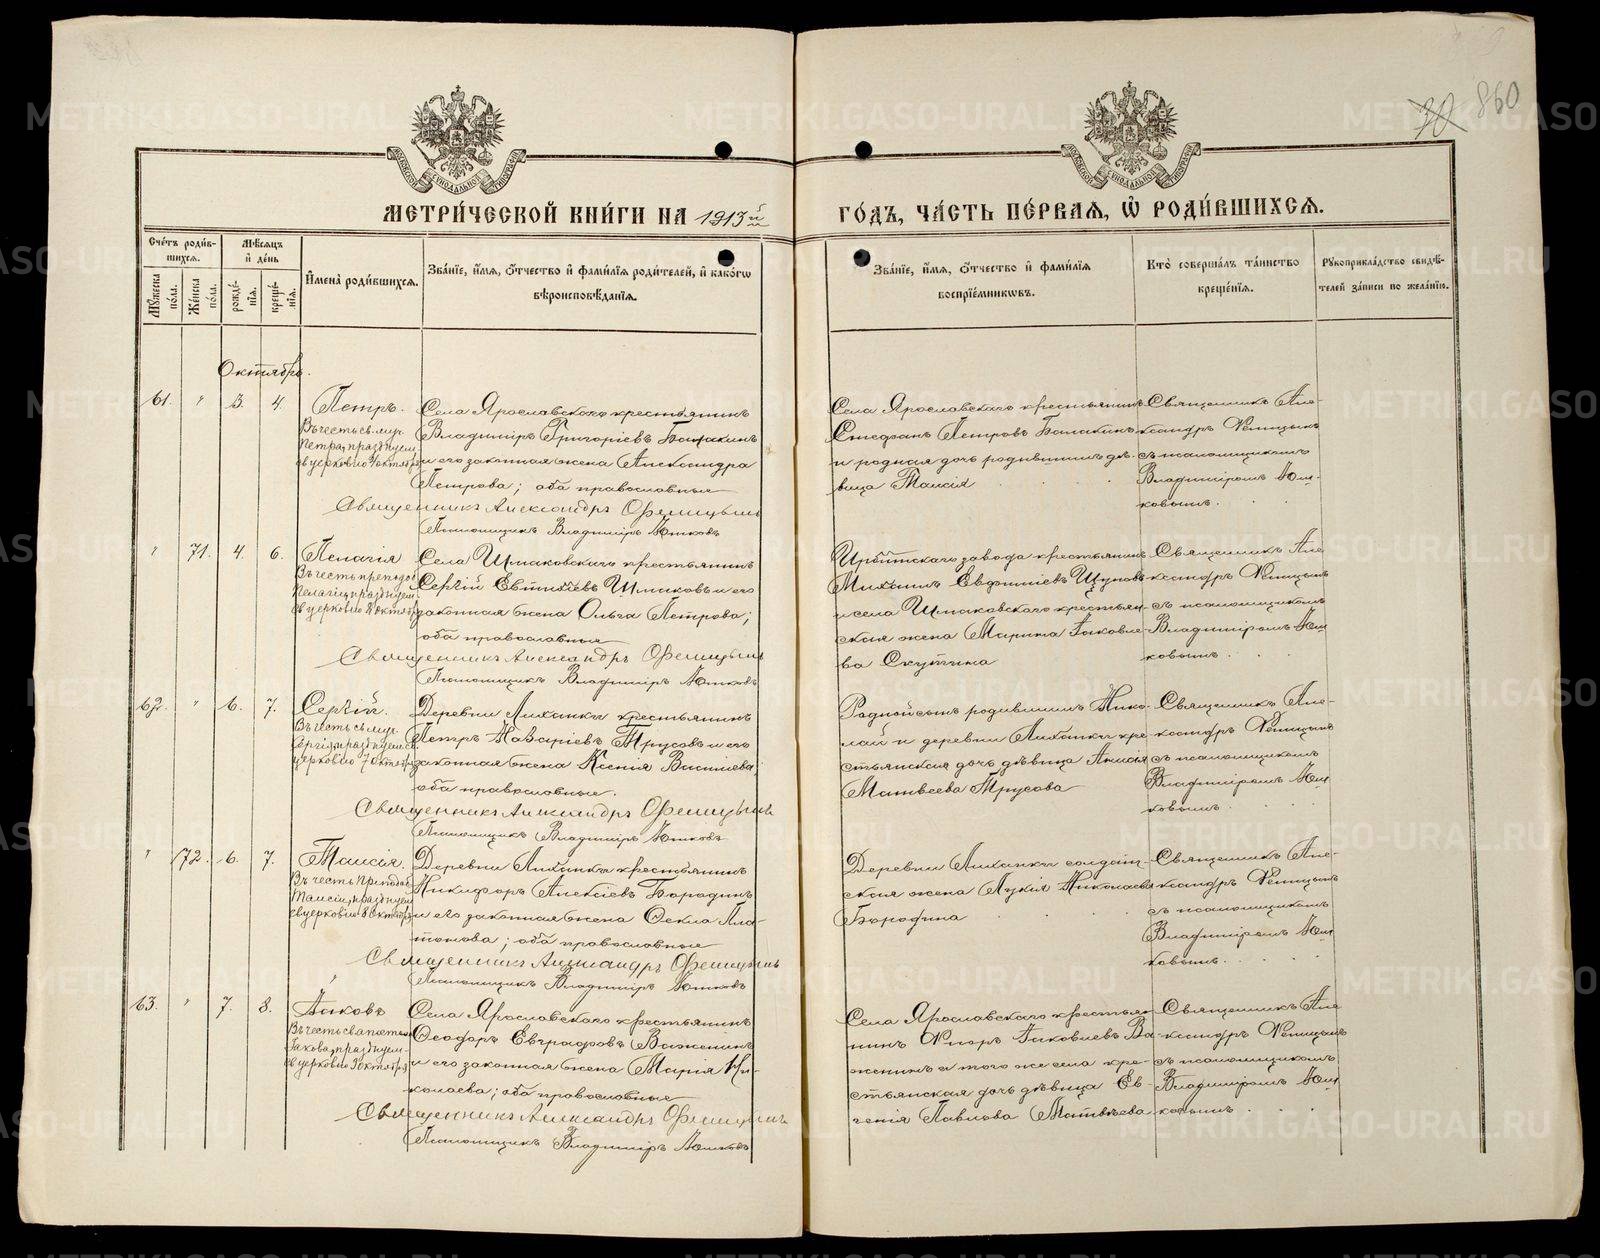 30 860
МОСКОВСКОЙ СѴНОДАЛЬНОЙ ТИПОГРАФІИ
МОСКОВСКОЙ СѴНОДАЛЬНОЙ ТИПОГРАФІИ
МЕТРИ́ЧЕСКОЙ КНИ́ГИ НА 1913й
ГО́ДЪ, ЧА́СТЬ ПЕ́РВАЯ, Ѡ҆ РОДИ́ВШИХСЯ.
Сче́тъ роди́в-
шихся.
Мꙋжеска по́ла.
Же́нска по́ла.
Мѣ́сяцъ
и҆ де́нь
рожде́-
нїя.
креще́-
нїя.
И҆мена̀ роди́вшихся.
Зва́нїе, и҆́мя, ѻ҆́тчество и҆ фами́лїя роди́телей, и҆ како́гѡ
вѣроисповѣ́данїя.
Зва́нїе, и҆́мя, ѻ҆́тчество и҆ фами́лїя
воспрїе́мникѡвъ.
Кто̀ соверша́лъ та́инство
креще́нїя.
Рꙋкоприкла́дство свидѣ́-
телей за́писи по жела́нїю.
Октябрь.
61. " 3. 4.
Петръ.
Въ честь св. муч.
Петра, празднуем.
св. церковію 4 октября
Села Ярославскаго крестьянинъ
Владиміръ Григоріевъ Балакинъ
и его законная жена Александра
Петрова; оба православные
Священникъ Александръ Ѳеницынъ
Псаломщикъ Владиміръ Юшковъ
Села Ярославскаго крестьянинъ
Стефанъ Петровъ Балакинъ
и родная дочь родившимъ дѣ-
вица Таисія
Священникъ Але-
ксандръ Ѳеницынъ
съ псаломщикомъ
Владиміромъ Юш-
ковымъ.
" 71. 4. 6.
Пелагія
Въ честь препод.
Пелагіи, празднуем.
св. церковію 8 октября
Села Шмаковскаго крестьянинъ
Сергій Евтихіевъ Шмаковъ и его
законная жена Ольга Петрова;
оба православные
Священникъ Александръ Ѳеницынъ
Псаломщикъ Владиміръ Юшковъ
Ирбитскаго завода крестьянинъ
Михаилъ Евфиміевъ Щуповъ
и села Шмаковскаго крестьян-
ская жена Марина Іаковле-
ва Скутина
Священникъ Але-
ксандръ Ѳеницынъ
съ псаломщикомъ
Владиміромъ Юш-
ковымъ.
62. " 6. 7.
Сергій.
Въ честь св. муч.
Сергія, празднуем. св.
церковію 7 октября
Деревни Лиханки крестьянинъ
Петръ Назаріевъ Трусовъ и его
законная жена Ксенія Васильева;
оба православные.
Священникъ Александръ Ѳеницынъ
Псаломщикъ Владиміръ Юшковъ
Родной сынъ родившимъ Нико-
лай и деревни Лиханки кре-
стьянская дочь дѣвица Анисія
Матвеева Трусова
Священникъ Але-
ксандръ Ѳеницынъ
съ псаломщикомъ
Владиміромъ Юш-
ковымъ.
" 72. 6. 7.
Таисія.
Въ честь препод.
Таисіи, празднуем.
св. церковію 8 октября
Деревни Лиханки крестьянинъ
Никифоръ Алексіевъ Бородинъ
и его законная жена Ѳекла Пла-
тонова; оба православные
Священникъ Александръ Ѳеницынъ
Псаломщикъ Владиміръ Юшковъ
Деревни Лиханки солдат-
ская жена Лукія Николаева
Бородина
Священникъ Але-
ксандръ Ѳеницынъ
съ псаломщикомъ
Владиміромъ Юш-
ковымъ.
63. " 7. 8.
Іаковъ
Въ честь св. апостола
Іакова, празднуем.
св. церковію 9 октября
Села Ярославскаго крестьянинъ
Ѳеодоръ Евграфовъ Важенинъ
и его законная жена Марія Ни-
колаева; оба православные
Священникъ Александръ Ѳеницынъ
Псаломщикъ Владиміръ Юшковъ
Села Ярославскаго крестья-
нинъ Флоръ Іаковлевъ Ва-
женинъ и того же села кре-
стьянская дочь дѣвица Ев-
генія Павлова Матвѣева
Священникъ Але-
ксандръ Ѳеницынъ
съ псаломщикомъ
Владиміромъ Юш-
ковымъ.
METRIKI.GASO-URAL.RU